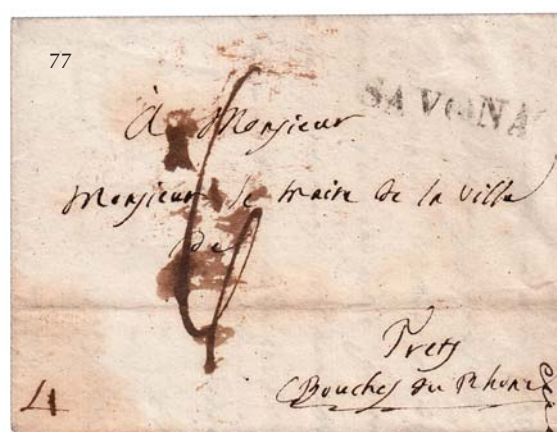 77
SAVONA
À Monsieur
Monsieur le maire de la ville
de
Trets
Bouches du Rhone
4